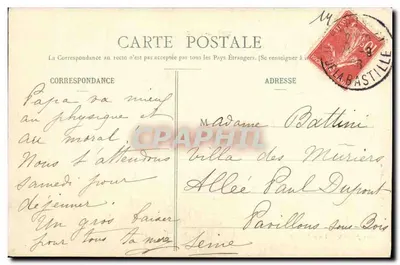 14
CARTE POSTALE
La Correspondance au recto n'est pas acceptée par tous les Pays Étrangers. (Se renseigner à
CORRESPONDANCE
ADRESSE
DE LA BASTILLE
Papa va mieux
au physique et
au moral.
Nous t'attendons
samedi pour
déjeuner.
Un gros baiser
pour tous ta mère
Madame Battini
Villa des Mûriers
Allée Paul Dupont
Pavillons sous Bois
Seine
CPAPHIL